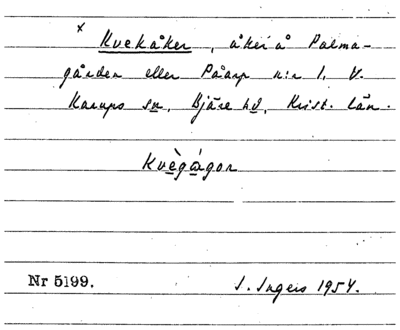 x
Kvekåker, åker å Palma-
gården eller Påarp n:r 1, V.
Karups sn, Bjäre hd, Krist. län.
Kvègågor
Nr 5199.
I. Ingers 1954.